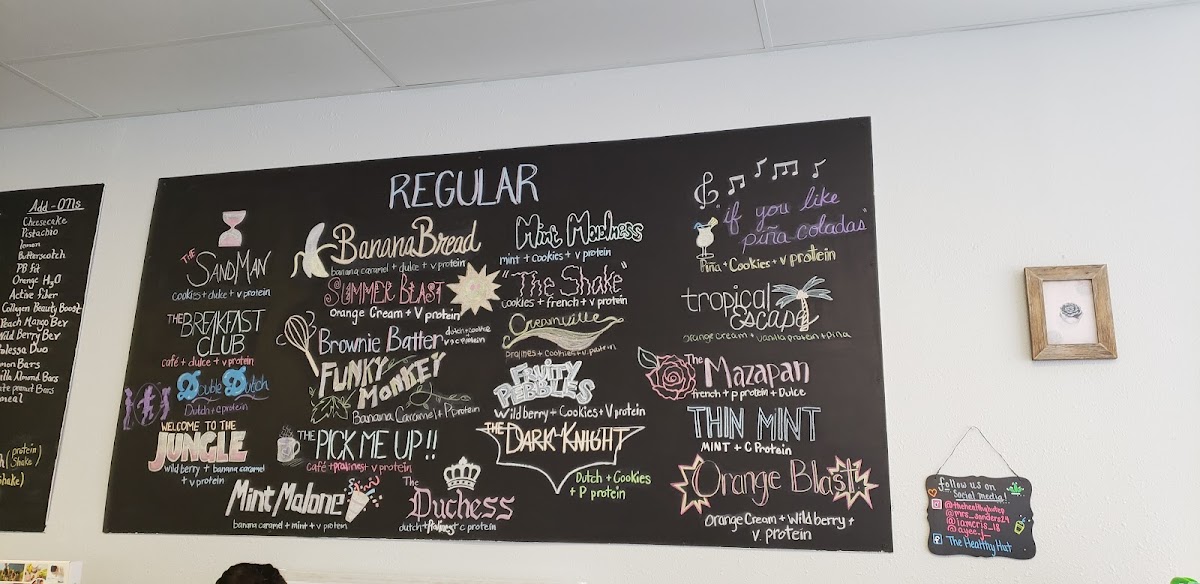 Add-ONs
Cheesecake
Pistachio
lemon
Butterscotch
PB fit
Orange H2O
Active fiber
Collagen Beauty Boost
Peach Mango Bev
Wild Berry Bev
Duo
Bars
Almond Bars
peanut Bars
(protein
Shake)
REGULAR
THE
SANDMAN
cookies + dulce + v protein
THE BREAKFAST
CLUB
café + dulce + v protein
Double Dutch
Dutch + c protein
WELCOME TO THE
JUNGLE
wild berry + banana caramel
+ v protein
Mint Malone
banana caramel + mint + v protein
Banana Bread
banana caramel + dulce + v protein
SUMMER BLAST
Orange Cream + V protein
Brownie Batter
dutch + cookie
+ v + c protein
FUNKY
MONKEY
Banana Caramel + P protein
THE PICK ME UP!!
café + pralines + v protein
The
Duchess
dutch + pralines + c protein
Mint Madness
mint + cookies + v protein
"The Shake"
cookies + french + v protein
Creamville
Pralines + Cookies + v protein
FRUITY
PEBBLES
Wild berry + Cookies + V protein
THE DARK KNIGHT
Dutch + Cookies
+ P protein
"if you like
piña coladas"
Piña + Cookies + v protein
tropical
escape
orange cream + vanilla protein + piña
The Mazapan
french + p protein + Dulce
THIN MINT
MINT + C Protein
Orange Blast
Orange Cream + Wild berry +
V. protein
follow us on
Social media!
@thehealthyhutep
@mrs_sanders29
@iamcris_18
The Healthy Hut